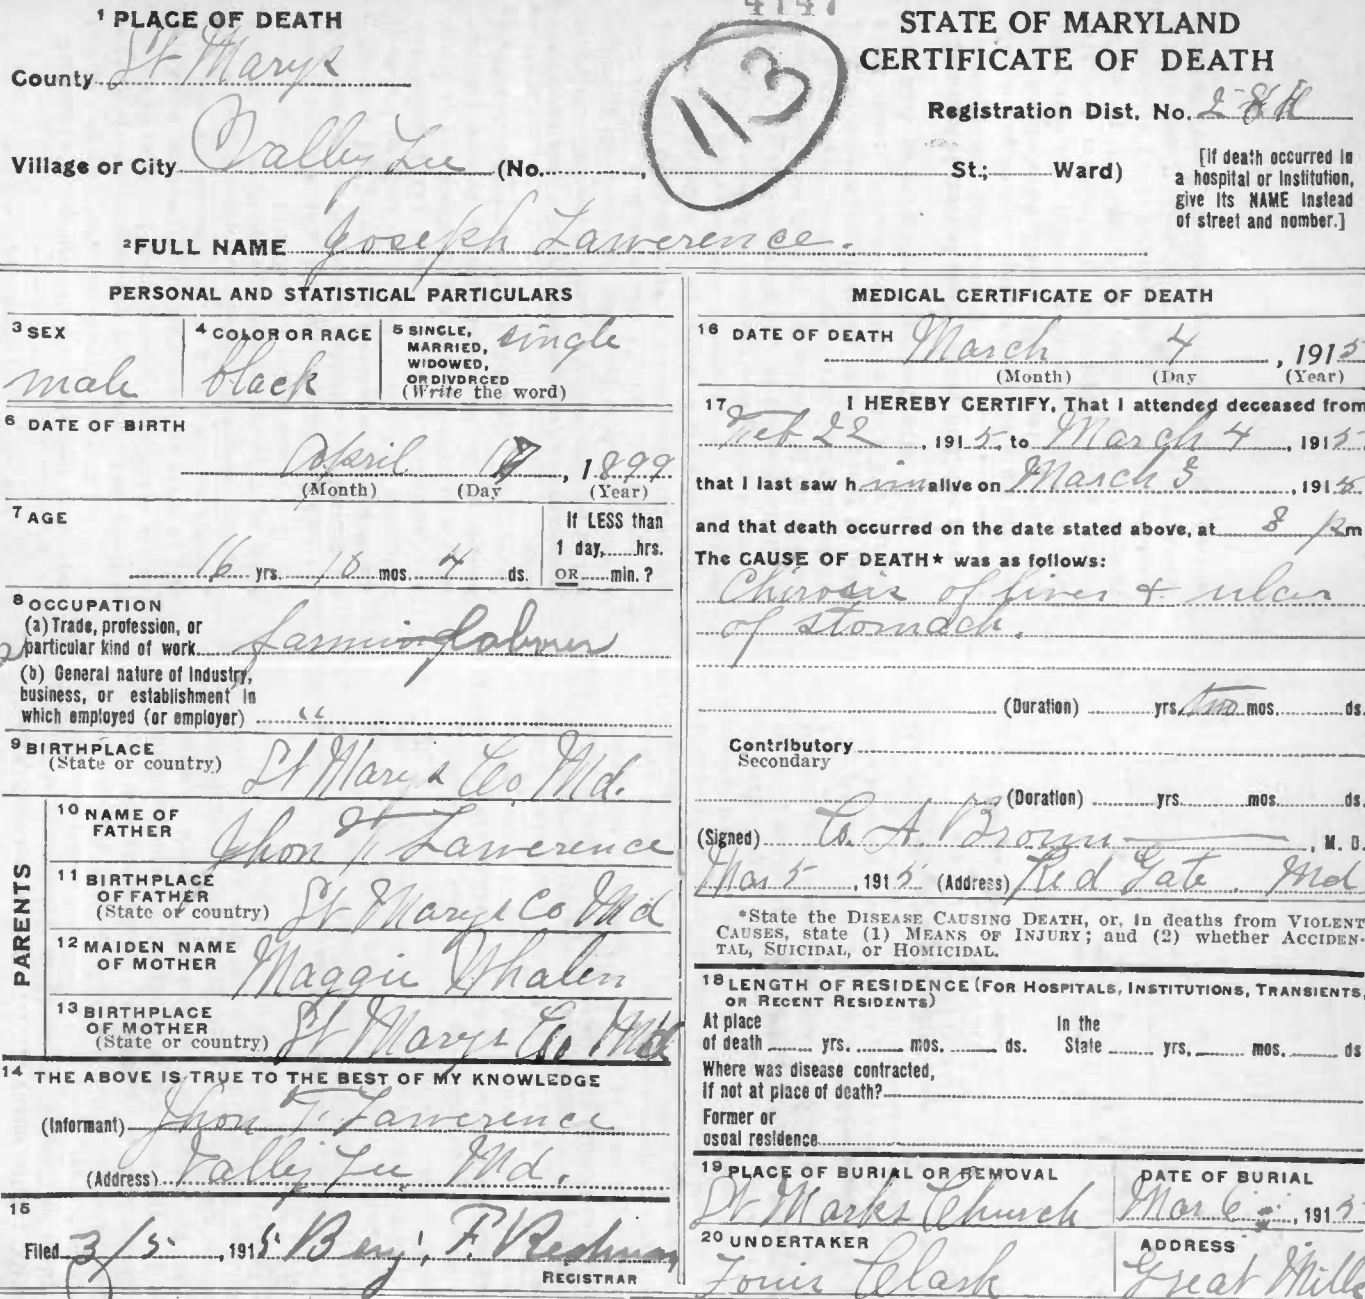 4147
113
1 PLACE OF DEATH
County St Marys
Village or City Vally Lee (No. , St.; Ward)
2 FULL NAME Joseph Lawerence.
STATE OF MARYLAND
CERTIFICATE OF DEATH
Registration Dist. No.
[If death occurred in
a hospital or institution,
give its NAME instead
of street and number.]
PERSONAL AND STATISTICAL PARTICULARS
3 SEX
male
4 COLOR OR RACE
black
5 SINGLE, single
MARRIED,
WIDOWED,
OR DIVORCED
(Write the word)
6 DATE OF BIRTH
April , 1899
(Month) (Day (Year)
7 AGE
16 yrs. 10 mos. 4 ds.
If LESS than
1 day, hrs.
OR min. ?
8 OCCUPATION
(a) Trade, profession, or
particular kind of work farming labourer
(b) General nature of industry,
business, or establishment in
which employed (or employer) "
9 BIRTHPLACE
(State or country) St Marys Co, Md.
PARENTS
10 NAME OF
FATHER Jhon T Lawerence
11 BIRTHPLACE
OF FATHER
(State or country) St Marys Co Md
12 MAIDEN NAME
OF MOTHER Maggie Whalen
13 BIRTHPLACE
OF MOTHER
(State or country) St Marys Co, Md
14 THE ABOVE IS TRUE TO THE BEST OF MY KNOWLEDGE
(Informant) Jhon T. Lawerence
(Address) Vally Lee Md.
15
Filed 3/5 , 1915 Benj. F. Redman
REGISTRAR
MEDICAL CERTIFICATE OF DEATH
16 DATE OF DEATH March 4 , 1915
(Month) (Day (Year)
17 I HEREBY CERTIFY, That I attended deceased from
Feb 22 , 1915, to March 4 , 1915
that I last saw h im alive on March 3 , 1915
and that death occurred on the date stated above, at 8 m
The CAUSE OF DEATH* was as follows:
Chirosis of liver + ulcer
of stomach.
(Duration) yrs. two mos. ds.
Contributory
Secondary
(Duration) yrs. mos. ds.
(Signed) A. Brown , M. D.
Mar 5 , 1915 (Address) Red Gate, Md
*State the DISEASE CAUSING DEATH, or, in deaths from VIOLENT
CAUSES, state (1) MEANS OF INJURY; and (2) whether ACCIDEN-
TAL, SUICIDAL, or HOMICIDAL.
18 LENGTH OF RESIDENCE (FOR HOSPITALS, INSTITUTIONS, TRANSIENTS,
OR RECENT RESIDENTS)
At place In the
of death yrs. mos. ds. State yrs. mos. ds
Where was disease contracted,
If not at place of death?
Former or
usual residence
19 PLACE OF BURIAL OR REMOVAL
St Marks Church
DATE OF BURIAL
Mar 6 , 1915
20 UNDERTAKER
Louis Clark
ADDRESS
Great Mills